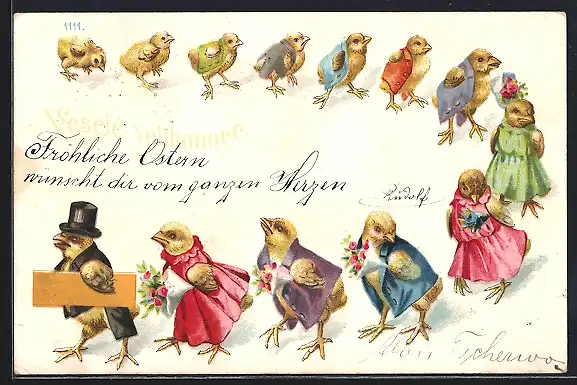 1111.
Veselé velikonoce.
Fröhliche Ostern
wünscht dir vom ganzen Herzen
Rudolf